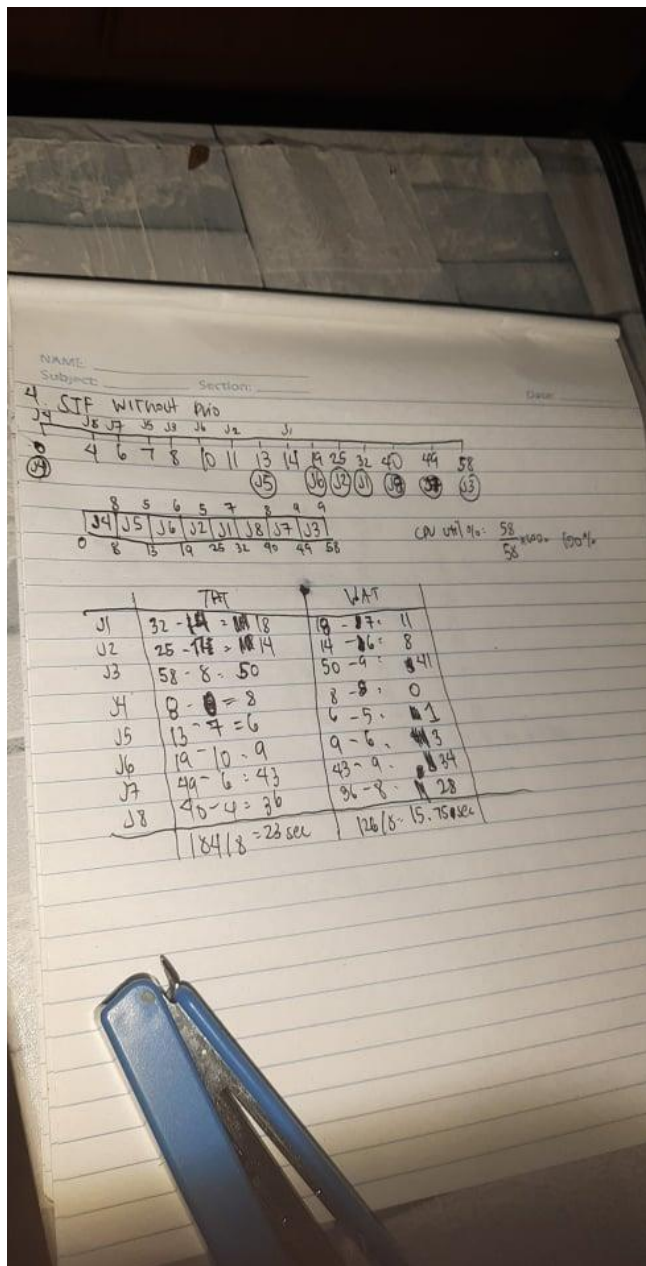 NAME:
Subject: Section: Date:
4. SJF Without Prio
J4 J8 J7 J5 J3 J6 J2 J1
0 4 6 7 8 10 11 13 14 19 25 32 40 49 58
J4 J5 J6 J2 J1 J8 J7 J3
8 5 6 5 7 8 9 9
J4 J5 J6 J2 J1 J8 J7 J3
0 8 13 19 25 32 40 49 58
CPU util %: 58/58 x100 = 100%
TAT WAT
J1 32 - 14 = 18 18 - 7 = 11
J2 25 - 11 = 14 14 - 6 = 8
J3 58 - 8 = 50 50 - 9 = 41
J4 8 - 0 = 8 8 - 8 = 0
J5 13 - 7 = 6 6 - 5 = 1
J6 19 - 10 = 9 9 - 6 = 3
J7 49 - 6 = 43 43 - 9 = 34
J8 40 - 4 = 36 36 - 8 = 28
184/8 = 23 sec 126/8 = 15.75 sec